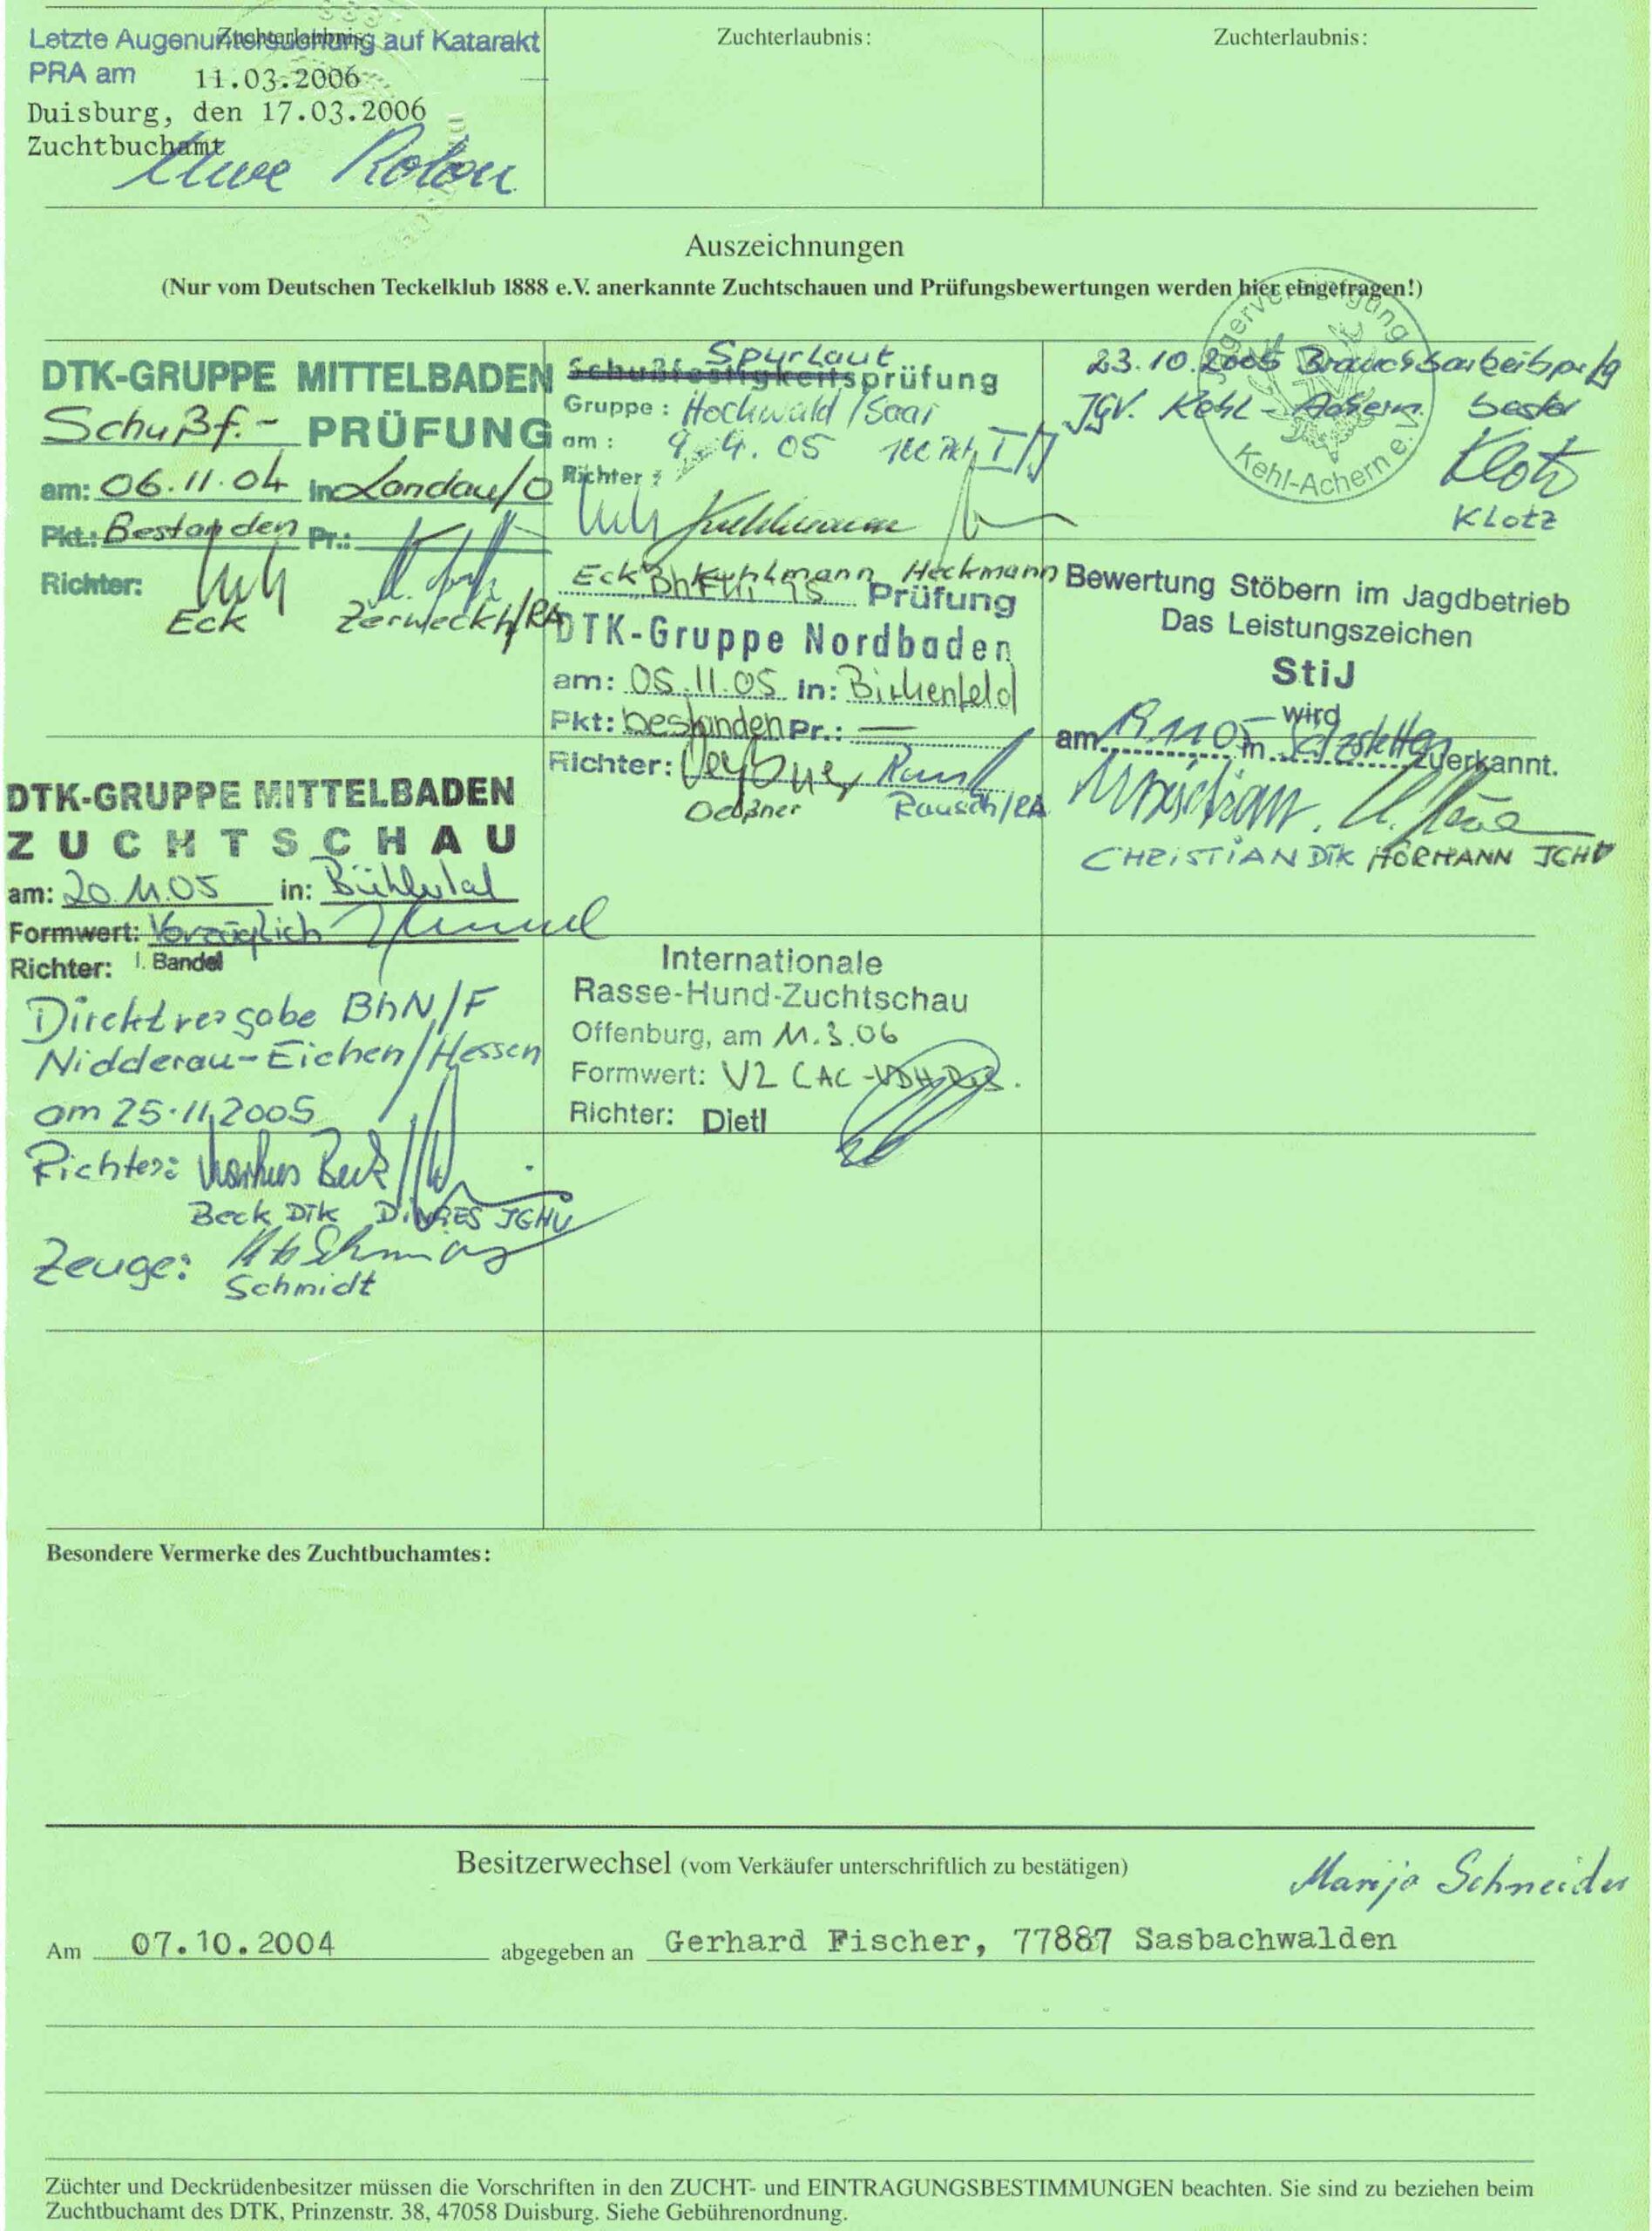 Zuchterlaubnis:
Zuchterlaubnis:
Zuchterlaubnis:
Letzte Augenuntersuchung auf Katarakt
PRA am 11.03.2006
Duisburg, den 17.03.2006
Zuchtbuchamt
Uwe
Auszeichnungen
(Nur vom Deutschen Teckelklub 1888 e.V. anerkannte Zuchtschauen und Prüfungsbewertungen werden hier eingetragen!)
DTK-GRUPPE MITTELBADEN
Schußf.- PRÜFUNG
am: 06.11.04 in Landau/O
Pkt.: Bestanden Pr.:
Richter:
Eck Zerweckh/RA
DTK-GRUPPE MITTELBADEN
ZUCHTSCHAU
am: 20.11.05 in: Bühlertal
Formwert: Vorzüglich
Richter: I. Bandel
Direktvergabe BhN/F
Nidderau-Eichen/Hessen
am 25.11.2005
Richter: Markus Beck
Beck DTK DINGES JGHV
Zeuge:
Schmidt
Spurlaut
Schußfestigkeitsprüfung
Gruppe: Hochwald/Saar
am: 9.4.05
Richter:
Kuhlmann
Eck Kuhlmann Heckmann
BhFK 95 Prüfung
DTK-Gruppe Nordbaden
am: 05.11.05 in: Birkenfeld
Pkt: bestanden Pr.: —
Richter:
Rausch/RA
Internationale
Rasse-Hund-Zuchtschau
Offenburg, am 11.3.06
Formwert: V2 CAC-VDH Res.
Richter: Dietl
Jägervereinigung
Kehl-Achern e.V.
23.10.2005
JGV. Kehl-Achern
Klotz
Klotz
Bewertung Stöbern im Jagdbetrieb
Das Leistungszeichen
StiJ
wird
am in zuerkannt.
CHRISTIAN DTK HÖRMANN JGHV
Besondere Vermerke des Zuchtbuchamtes:
Besitzerwechsel (vom Verkäufer unterschriftlich zu bestätigen)
Marija Schneider
Am 07.10.2004 abgegeben an Gerhard Fischer, 77887 Sasbachwalden
Züchter und Deckrüdenbesitzer müssen die Vorschriften in den ZUCHT- und EINTRAGUNGSBESTIMMUNGEN beachten. Sie sind zu beziehen beim
Zuchtbuchamt des DTK, Prinzenstr. 38, 47058 Duisburg. Siehe Gebührenordnung.